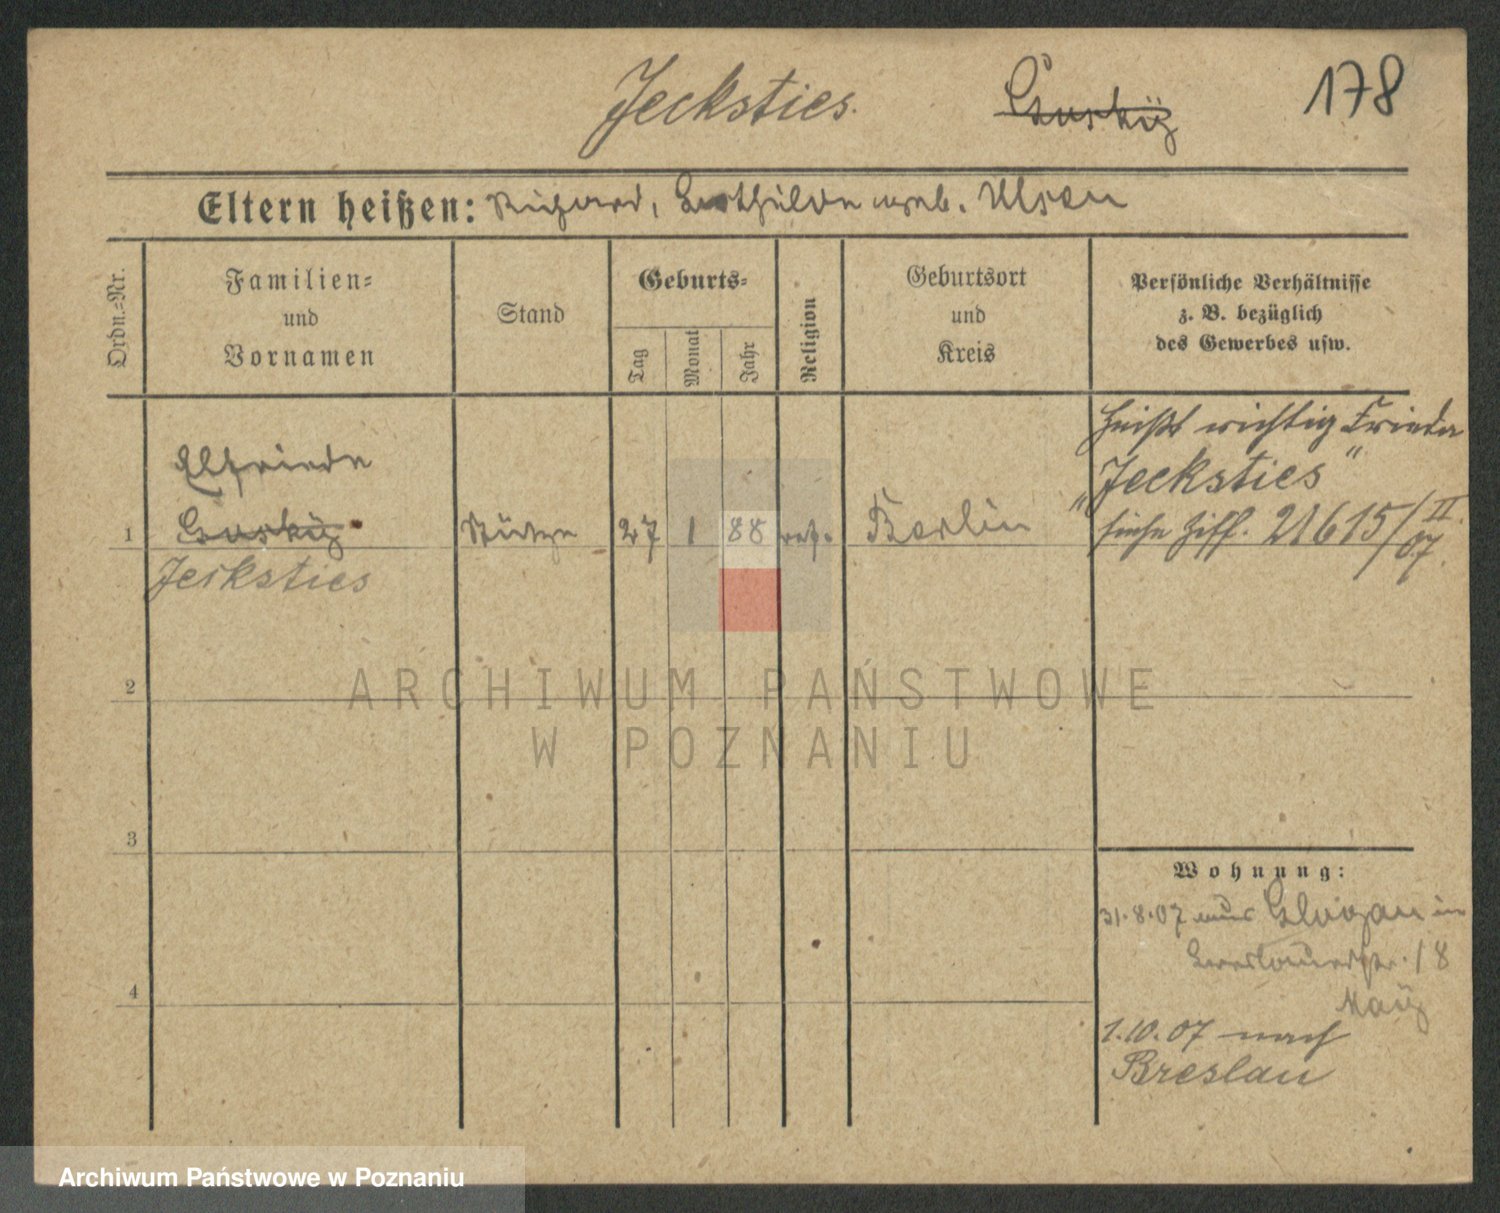 Jecksties.
178
Eltern heißen: Richard, geb.
Ordn.=Nr.
Familien=
und
Vornamen
Stand
Geburts=
Tag
Monat
Jahr
Religion
Geburtsort
und
Kreis
Persönliche Verhältnisse
z. B. bezüglich
des Gewerbes usw.
Elfriede
1
Stütze
27
1
88
Berlin
Jecksties
heißt richtig Frieda
"Jecksties"
siehe Ziff. 21615/II.
07.
2
3
4
Wohnung:
31.8.07 aus Glogau in
18
1.10.07 nach
Breslau
ARCHIWUM PAŃSTWOWE
W POZNANIU
Archiwum Państwowe w Poznaniu